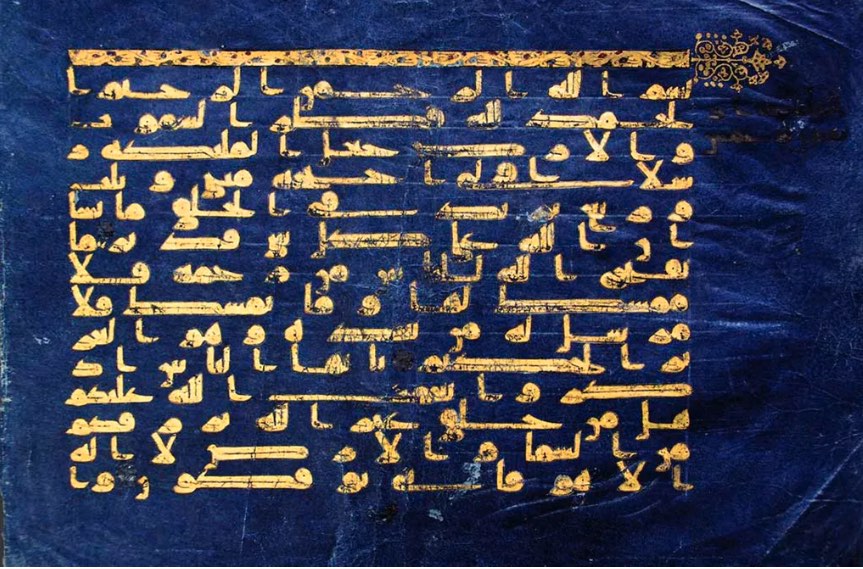 بسم الله الرحمن الرحيم ا
لحمد لله فاطر السموت
و الارض جعل الملئكة ر
سلا اولى اجنحة مثنى و ثلث
و ربع يزيد فى الخلق ما يشا
ان الله على كل شى قدير ما
يفتح الله للناس من رحمة فلا
ممسك لها و ما يمسك فلا
مرسل له من بعده و هو العز
يز الحكيم يايها الناس اذ
كروا نعمت الله عليكم
هل من خلق غير الله يرزقكم
من السما و الارض لا اله
الا هو فانى توفكون و ا